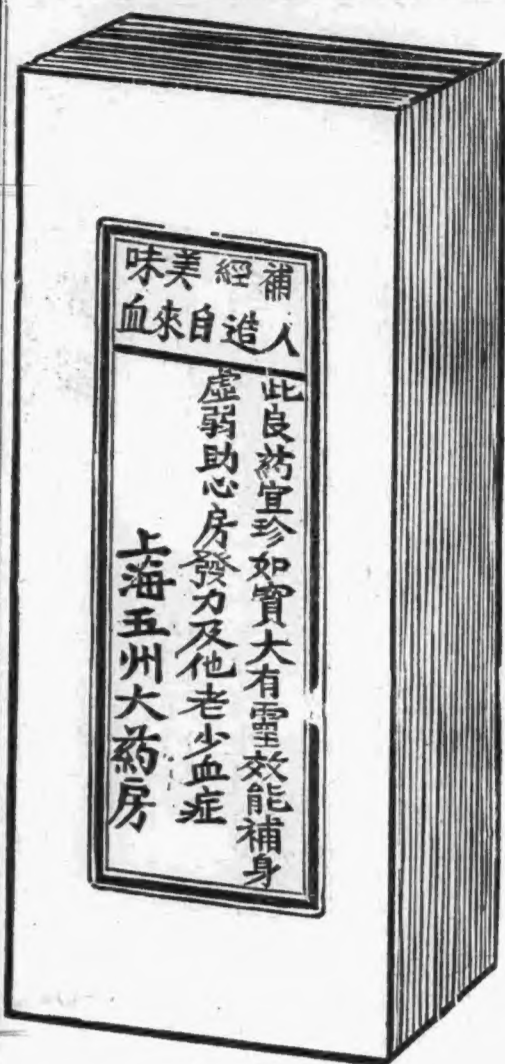 補經美味
人造自來血
此良葯宜珍如寳大有靈效能補身
虛弱助心房發力及他老少血症
上海五州大葯房